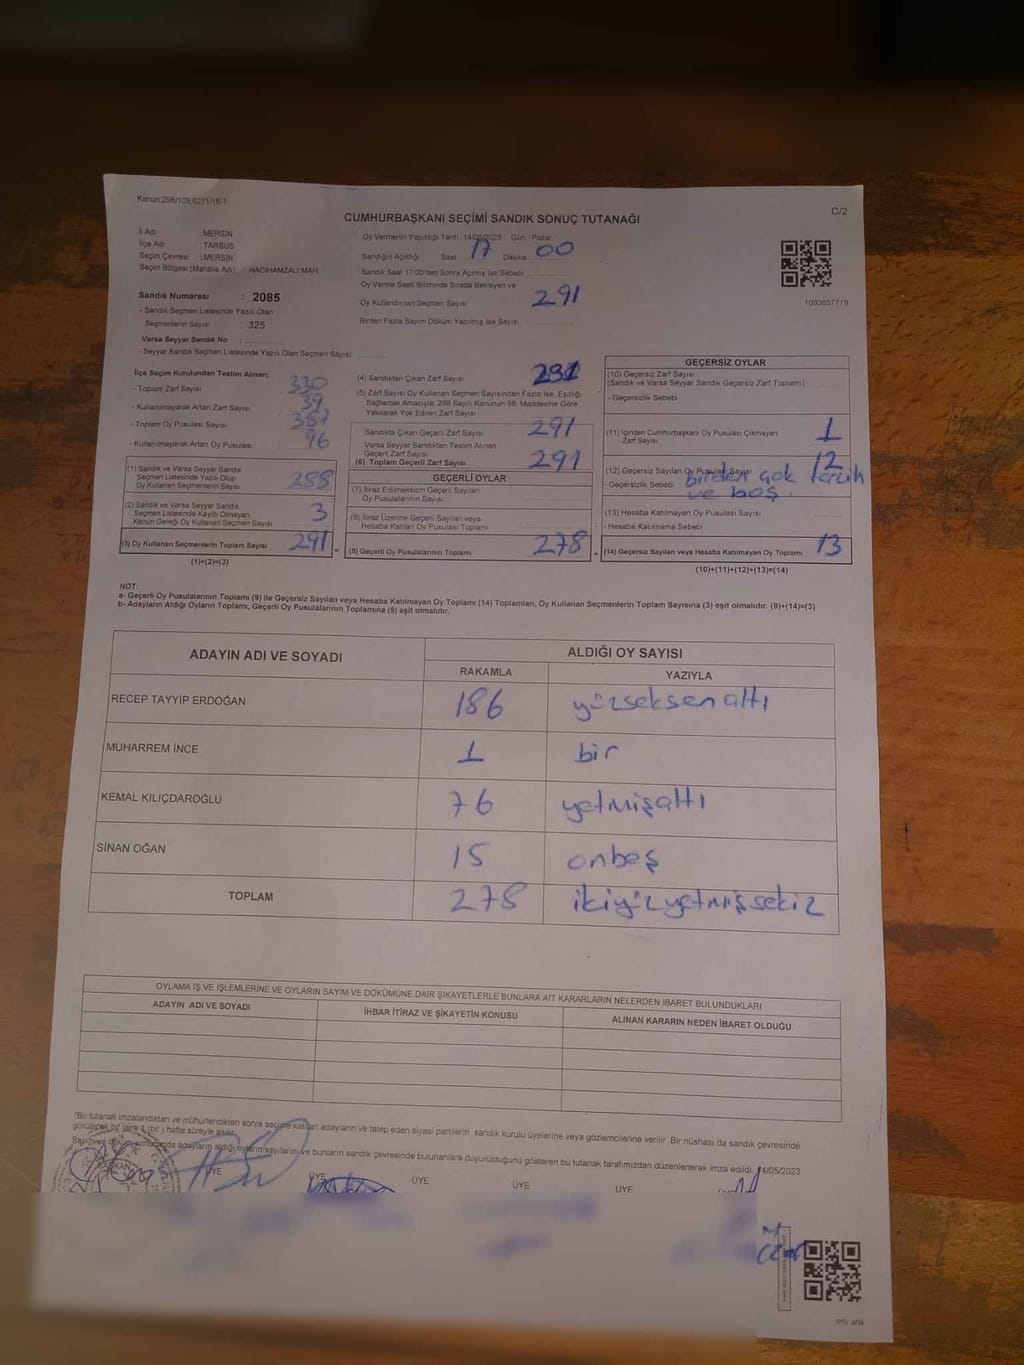 Kanun:298/105;6271/18-1
C/2
CUMHURBAŞKANI SEÇİMİ SANDIK SONUÇ TUTANAĞI
İl Adı : MERSİN
İlçe Adı : TARSUS
Seçim Çevresi : MERSİN
Seçim Bölgesi (Mahalle Adı) : HACIHAMZALI MAH.
Sandık Numarası : 2085
- Sandık Seçmen Listesinde Yazılı Olan
Seçmenlerin Sayısı : 325
Varsa Seyyar Sandık No :
- Seyyar Sandık Seçmen Listesinde Yazılı Olan Seçmen Sayısı:
Oy Vermenin Yapıldığı Tarih : 14/05/2023 Gün : Pazar
Sandığın Açıldığı Saat 17 Dakika 00
Sandık Saat 17:00'den Sonra Açılmış İse Sebebi
Oy Verme Saati Bitiminde Sırada Bekleyen ve
Oy Kullandırılan Seçmen Sayısı 291
Birden Fazla Sayım Döküm Yapılmış İse Sayısı :
1093657719
İlçe Seçim Kurulundan Teslim Alınan;
- Toplam Zarf Sayısı 330
- Kullanılmayarak Artan Zarf Sayısı 39
- Toplam Oy Pusulası Sayısı 387
- Kullanılmayarak Artan Oy Pusulası 96
(1) Sandık ve Varsa Seyyar Sandık
Seçmen Listesinde Yazılı Olup
Oy Kullanan Seçmenlerin Sayısı 288
(2) Sandık ve Varsa Seyyar Sandık
Seçmen Listesinde Kaydı Olmayan
Kanun Gereği Oy Kullanan Seçmen Sayısı 3
(3) Oy Kullanan Seçmenlerin Toplam Sayısı 291
(1)+(2)=(3)
(4) Sandıktan Çıkan Zarf Sayısı 291
(5) Zarf Sayısı Oy Kullanan Seçmen Sayısından Fazla İse, Eşitliği
Sağlamak Amacıyla; 298 Sayılı Kanunun 98. Maddesine Göre
Yakılarak Yok Edilen Zarf Sayısı
Sandıkta Çıkan Geçerli Zarf Sayısı 291
Varsa Seyyar Sandıktan Teslim Alınan
Geçerli Zarf Sayısı
(6) Toplam Geçerli Zarf Sayısı 291
GEÇERLİ OYLAR
(7) İtiraz Edilmeksizin Geçerli Sayılan
Oy Pusulalarının Sayısı
(8) İtiraz Üzerine Geçerli Sayılan veya
Hesaba Katılan Oy Pusulası Toplamı
(9) Geçerli Oy Pusulalarının Toplamı 278
GEÇERSİZ OYLAR
(10) Geçersiz Zarf Sayısı
(Sandık ve Varsa Seyyar Sandık Geçersiz Zarf Toplamı)
- Geçersizlik Sebebi
(11) İçinden Cumhurbaşkanı Oy Pusulası Çıkmayan
Zarf Sayısı 1
(12) Geçersiz Sayılan Oy Pusulası Sayısı 12
- Geçersizlik Sebebi birden çok tercih
ve boş
(13) Hesaba Katılmayan Oy Pusulası Sayısı
- Hesaba Katılmama Sebebi
(14) Geçersiz Sayılan veya Hesaba Katılmayan Oy Toplamı 13
(10)+(11)+(12)+(13)=(14)
NOT:
a- Geçerli Oy Pusulalarının Toplamı (9) ile Geçersiz Sayılan veya Hesaba Katılmayan Oy Toplamı (14) Toplamları, Oy Kullanan Seçmenlerin Toplam Sayısına (3) eşit olmalıdır. (9)+(14)=(3)
b- Adayların Aldığı Oyların Toplamı, Geçerli Oy Pusulalarının Toplamına (9) eşit olmalıdır.
ADAYIN ADI VE SOYADI ALDIĞI OY SAYISI
RAKAMLA YAZIYLA
RECEP TAYYİP ERDOĞAN 186 yüzseksenaltı
MUHARREM İNCE 1 bir
KEMAL KILIÇDAROĞLU 76 yetmişaltı
SİNAN OĞAN 15 onbeş
TOPLAM 278 ikiyüzyetmişsekiz
OYLAMA İŞ VE İŞLEMLERİNE VE OYLARIN SAYIM VE DÖKÜMÜNE DAİR ŞİKAYETLERLE BUNLARA AİT KARARLARIN NELERDEN İBARET BULUNDUKLARI
ADAYIN ADI VE SOYADI İHBAR İTİRAZ VE ŞİKAYETİN KONUSU ALINAN KARARIN NEDEN İBARET OLDUĞU
*Bu tutanak imzalandıktan ve mühürlendikten sonra seçime katılan adayların ve talep eden siyasi partilerin sandık kurulu üyelerine veya gözlemcilerine verilir. Bir nüshası da sandık çevresinde
görülecek bir yere 1 (bir) hafta süreyle asılır.
Sayım ve döküm sonucunda adayların aldığı oyların sayılarını ve bunların sandık çevresinde bulunanlara duyurulduğunu gösteren bu tutanak tarafımızdan düzenlenerek imza edildi. 14/05/2023
BAŞKAN ÜYE ÜYE ÜYE ÜYE ÜYE